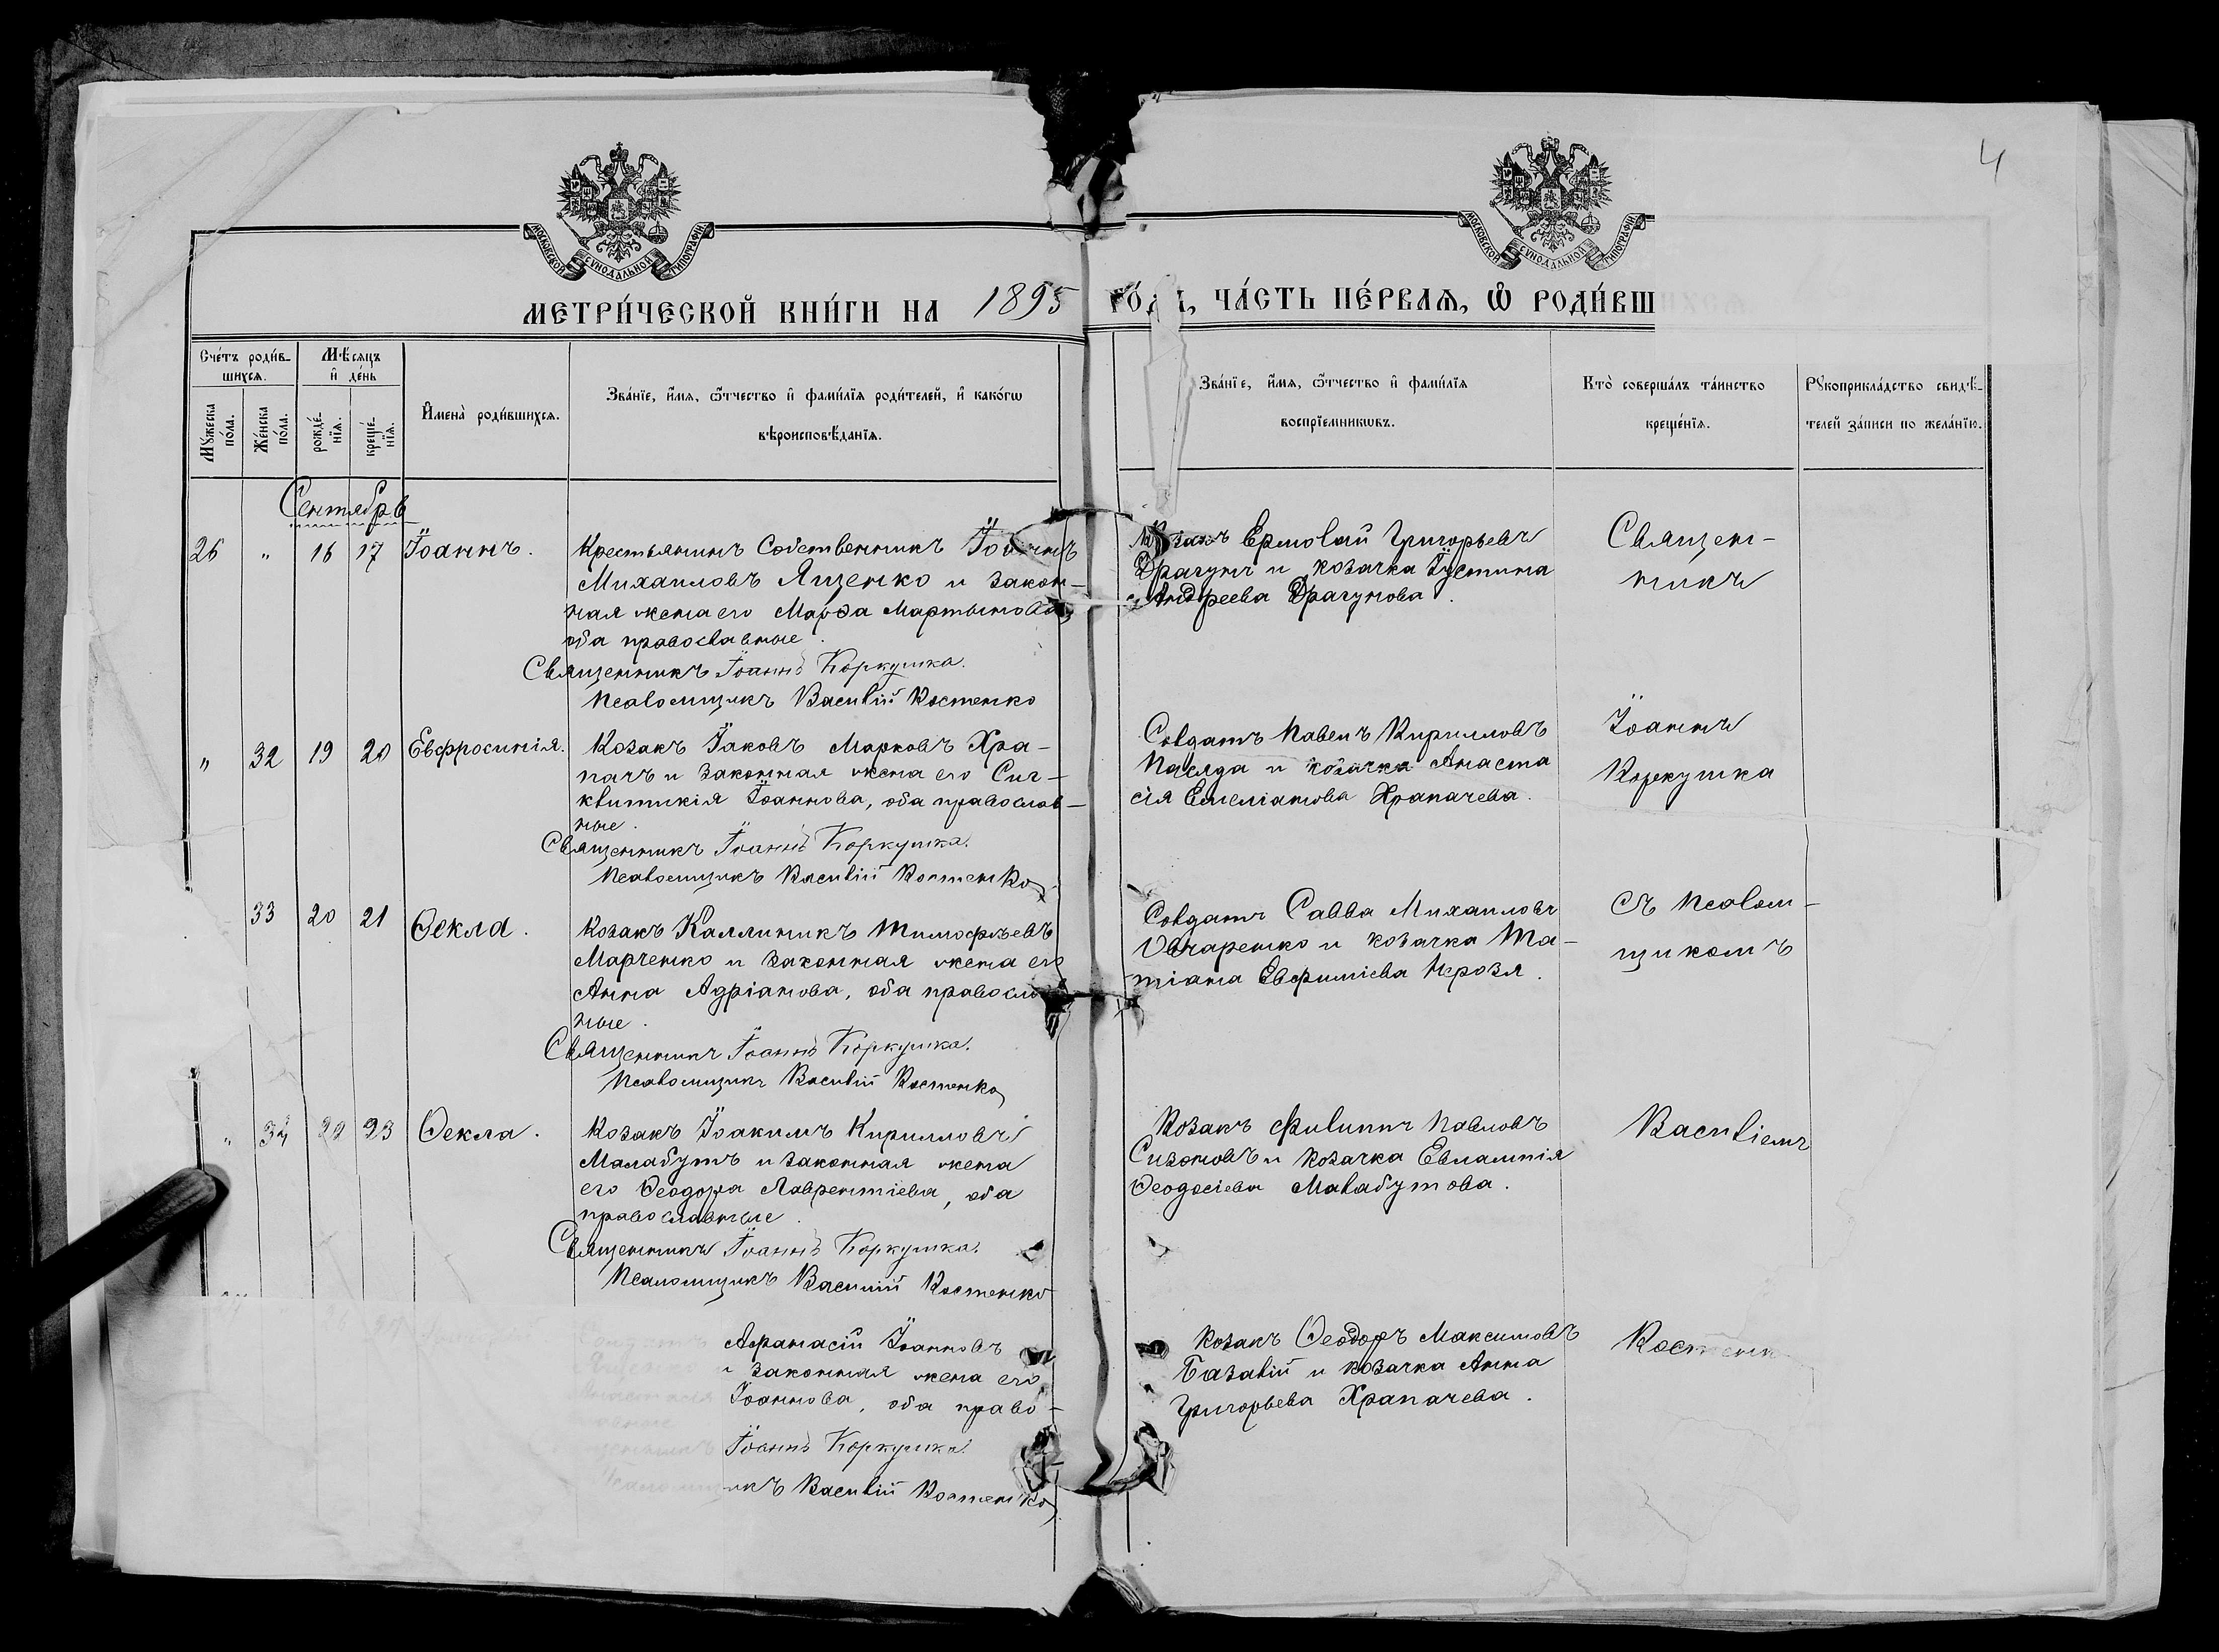 4
МОСКОВСКОЙ СѴНОДАЛЬНОЙ ТИПОГРАФІИ
МОСКОВСКОЙ СѴНОДАЛЬНОЙ ТИПОГРАФІИ
МЕТРИ́ЧЕСКОЙ КНИ́ГИ НА 1895
ЧА́СТЬ ПЕ́РВАѦ, Ѿ РОДИ́ВШ
Сче́тъ роди́в-
шихсѧ.
Мѣ́сѧцъ
и҆ де́нь
Мꙋ́жеска по́ла.
Же́нска по́ла.
рожде́-
нїѧ.
креще́-
нїѧ.
И҆мена̀ роди́вшихсѧ.
Зва́нїе, и҆́мѧ, ѻ҆́тчество и҆ фами́лїѧ роди́телей, и҆ како́гѡ
вѣроисповѣ́данїѧ.
Зва́нїе, и҆́мѧ, ѻ҆́тчество и҆ фами́лїѧ
воспрїе́мникѡвъ.
Кто̀ соверша́лъ та́инство
креще́нїѧ.
Рꙋкоприкла́дство свидѣ́-
телей за́писи по жела́нїю.
Сентябрь
26 " 16 17 Іоаннъ.
Крестьянинъ Собственникъ Іоаннъ
Михаиловъ Яценко и закон-
ная жена его Марѳа Мартынова,
оба православные.
Священникъ Іоаннъ Коркушка.
Псаломщикъ Василій Костенко
Козакъ Ермолай Григорьевъ
Драгунъ и козачка Іустина
Андреева Драгунова.
Священ-
никъ
" 32 19 20 Евфросинія.
Козакъ Іаковъ Марковъ Хра-
пачъ и законная жена его Син-
клитикія Іоаннова, оба православ-
ные.
Священникъ Іоаннъ Коркушка.
Псаломщикъ Василій Костенко
Солдатъ Павелъ Кирилловъ
и козачка Анаста
сія Емеліанова Храпачева.
Іоаннъ
Коркушка
33 20 21 Ѳекла.
Козакъ Каллиникъ Тимофѣевъ
Марченко и законная жена его
Анна Адріанова, оба правосла
ные.
Священникъ Іоаннъ Коркушка.
Псаломщикъ Василій Костенко
Солдатъ Савва Михаиловъ
Овчаренко и козачка Та-
тіана Евфиміева
съ псалом-
щикомъ
" 34 22 23 Ѳекла.
Козакъ Іоакимъ Кирилловъ
Малабутъ и законная жена
его Ѳеодора Лаврентіева, оба
православные.
Священникъ Іоаннъ Коркушка.
Псаломщикъ Василій Костенко
Козакъ Филиппъ Павловъ
Сизоновъ и козачка Евлампія
Ѳеодосіева Малабутова.
Василіемъ
Афанасій Іоанновъ
и законная жена его
Іоаннова, оба право-
Іоаннъ Коркушка.
икъ Василій Костенко
Козакъ Ѳеодоръ Максимовъ
Базалій и козачка Анна
Григорьева Храпачева.
Костенк